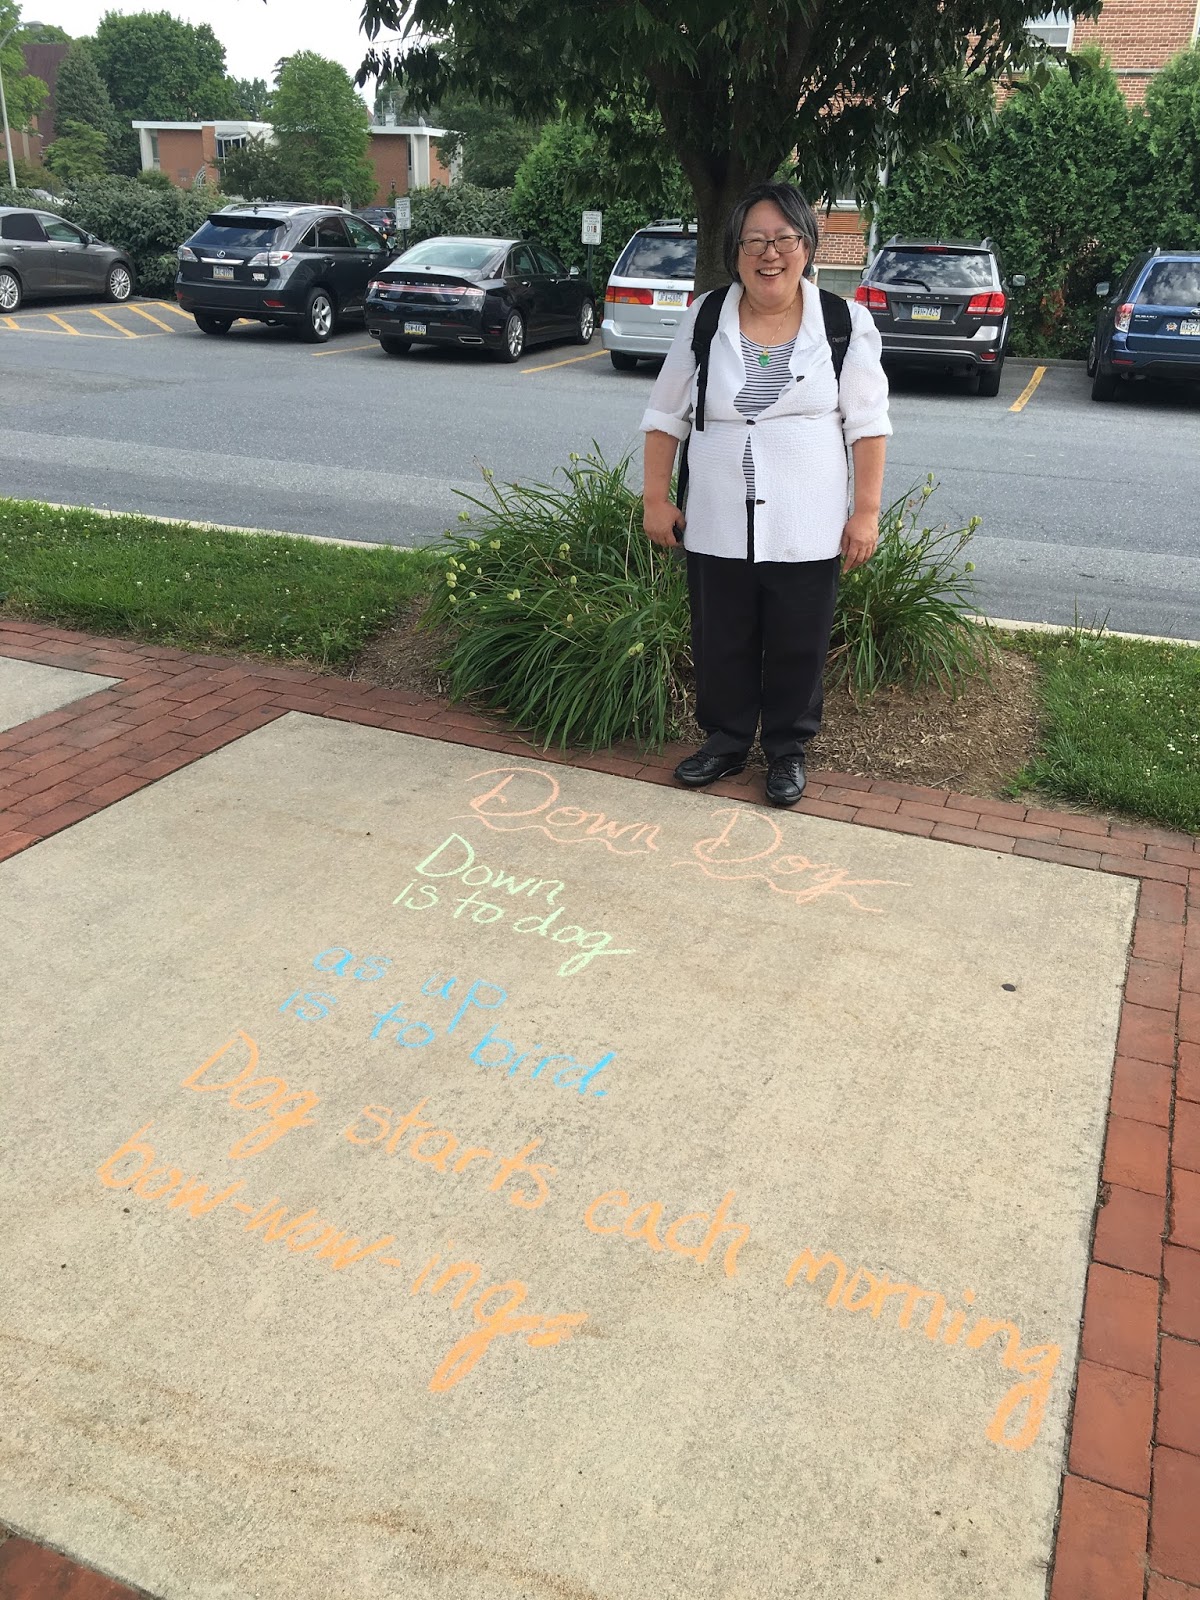 Down Dog
Down
is to dog
as up
is to bird.
Dog starts each morning
bow-wow-ing=